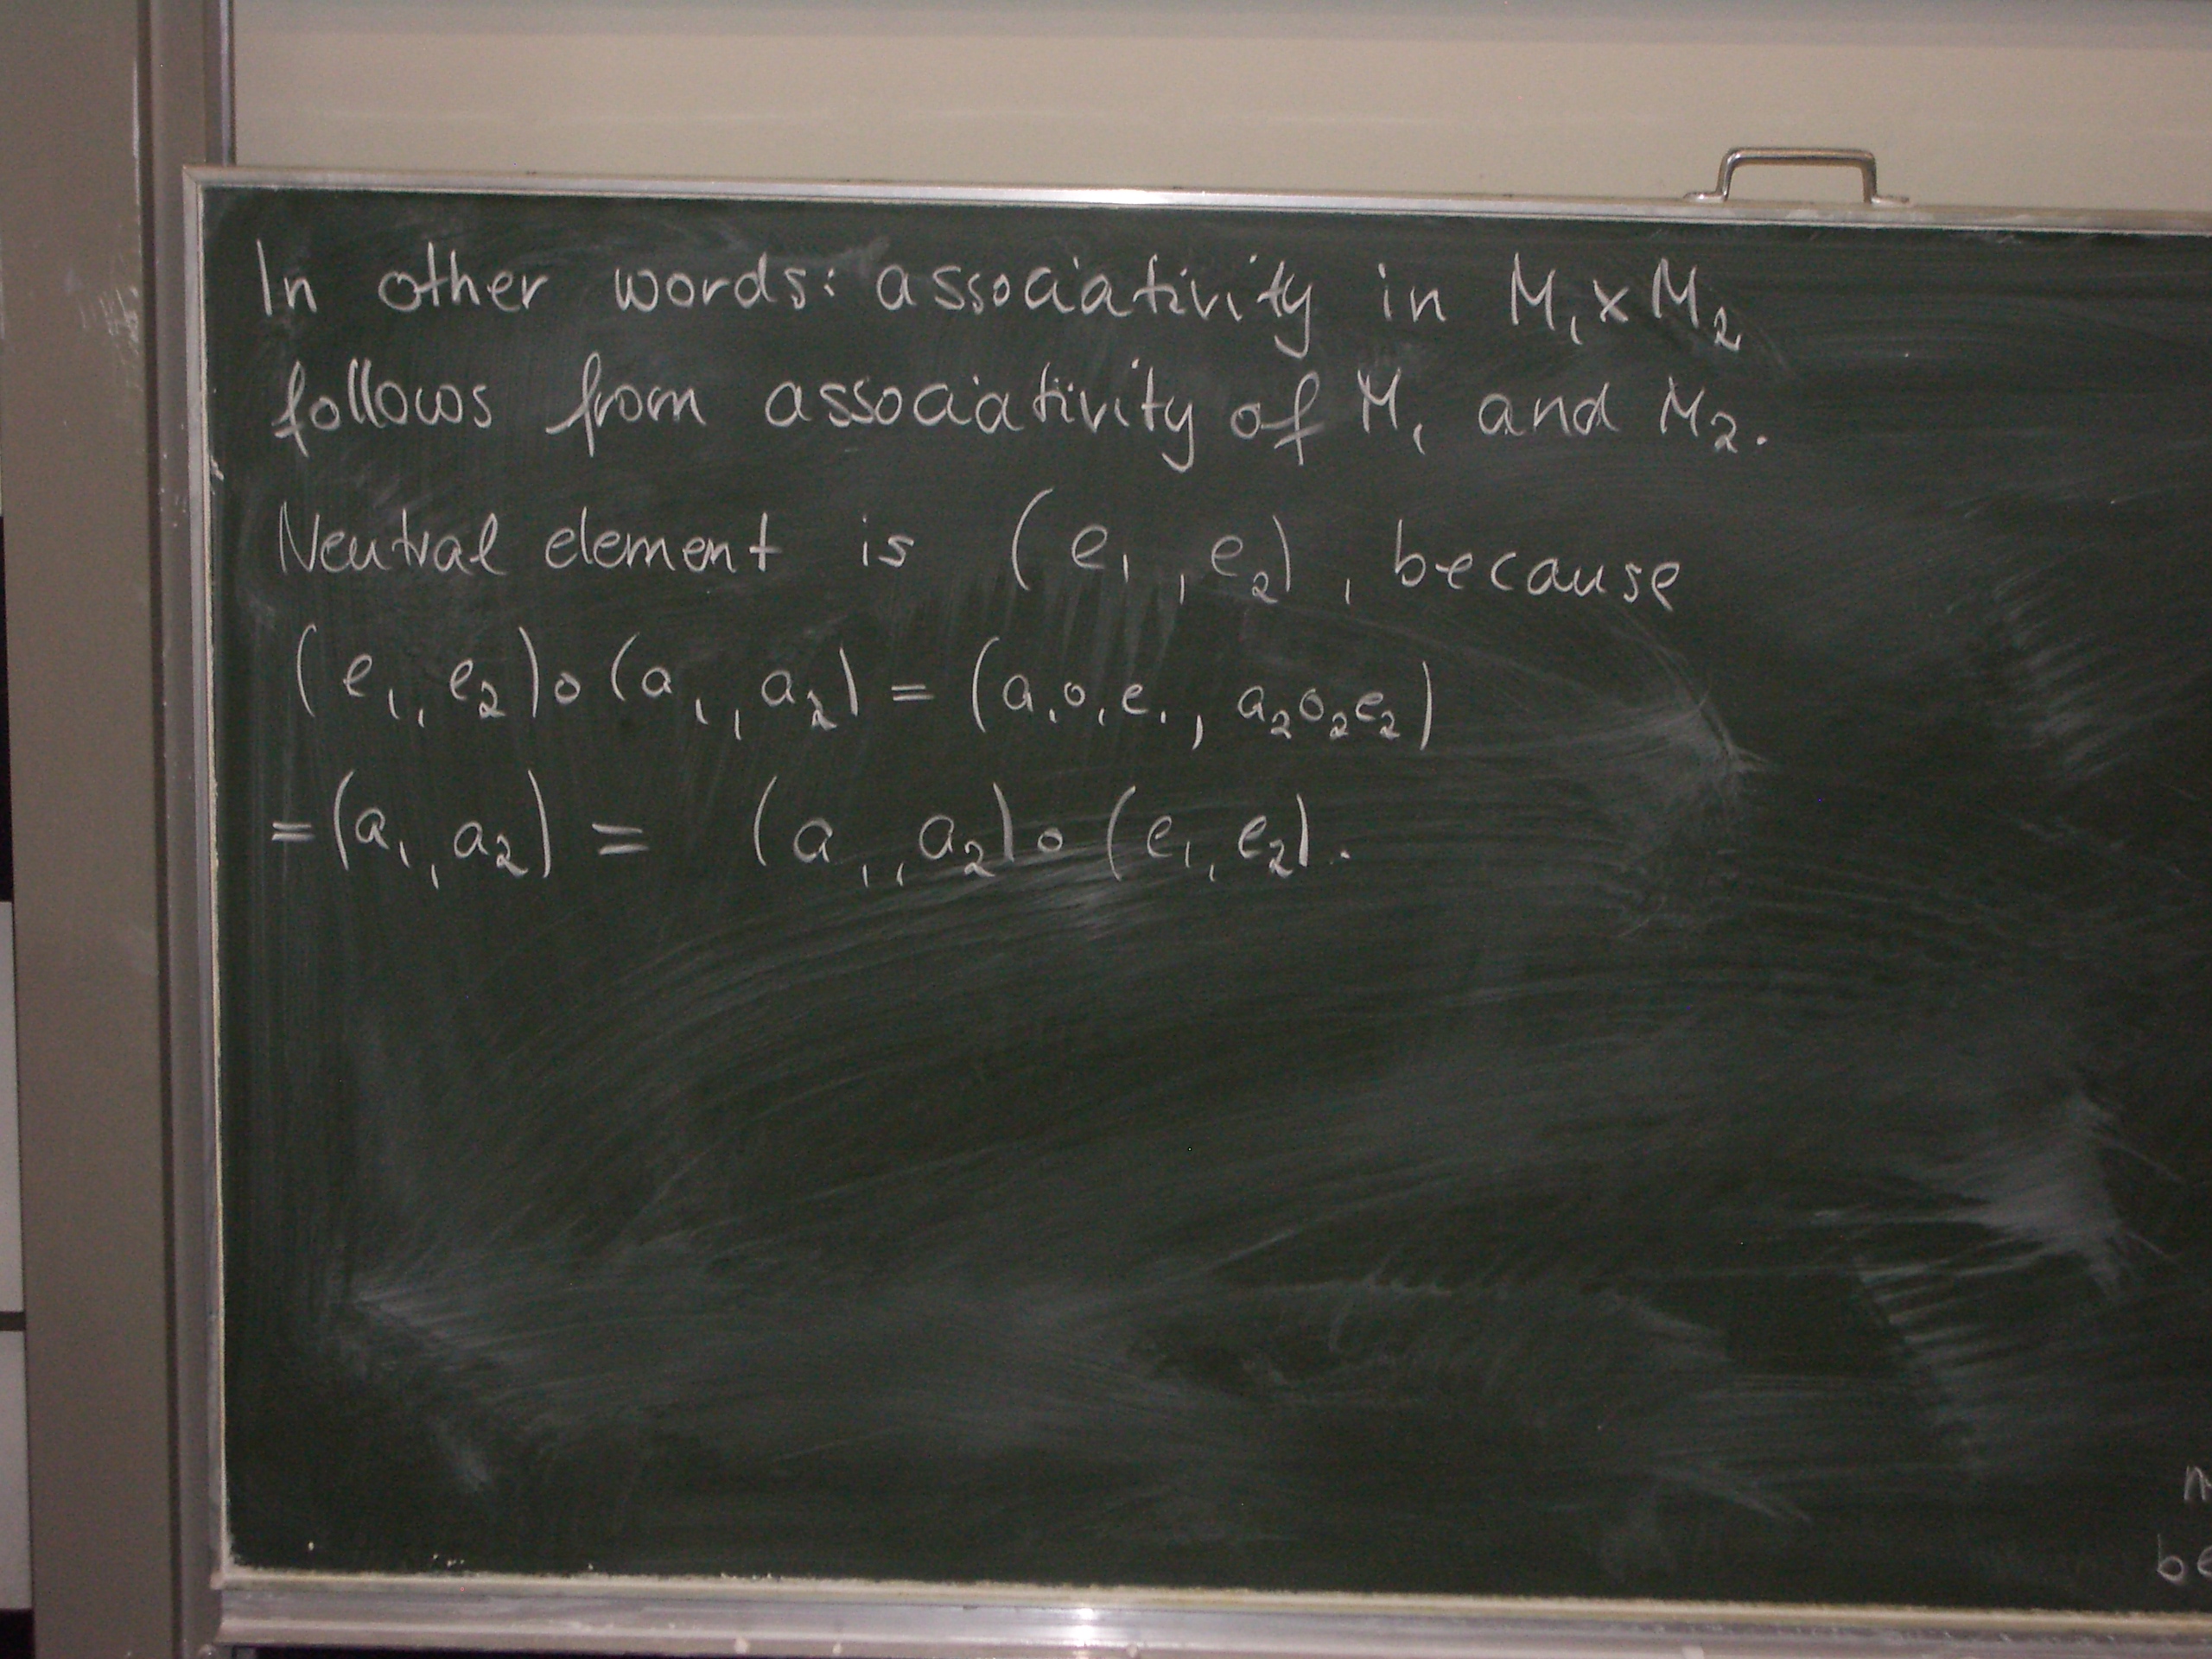 In other words: associativity in M₁ x M₂
follows from associativity of M₁ and M₂.
Neutral element is (e₁, e₂), because
(e₁, e₂)∘(a₁, a₂) = (a₁∘₁e₁, a₂∘₂e₂)
= (a₁, a₂) = (a₁, a₂)∘(e₁, e₂).